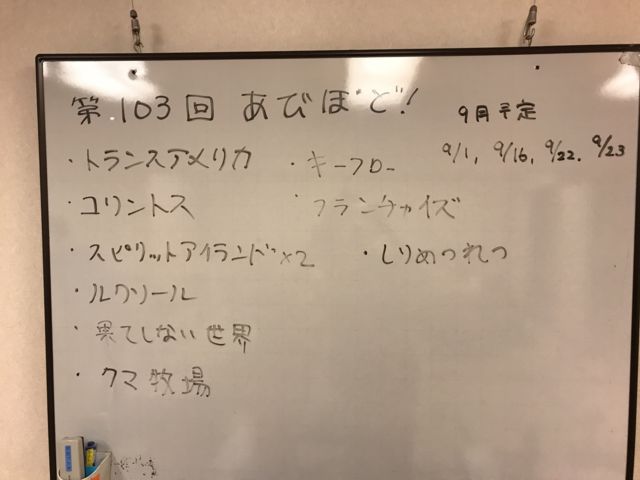 第103回 あびぼど!
9月予定
9/1, 9/16, 9/22. 9/23
・トランスアメリカ
・コリントス
・スピリットアイランド×2
・ルクソール
・果てしない世界
・クマ牧場
・キーフロー
・フランチャイズ
・しりめつれつ